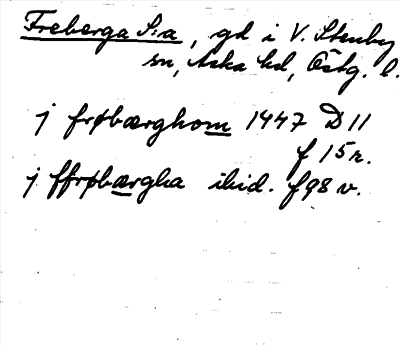 Freberga S:a, gd i V. Stenby
sn, Aska hd, Östg. l.
j frøbærghom 1447 D 11
f 15 r.
j ffrøbærgha ibid. f 98 v.